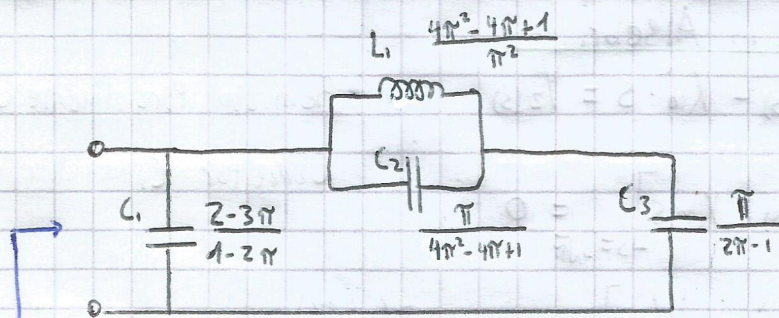 L₁ (4π²-4π+1)/π²
C₂ π/(4π²-4π+1)
C₁ (2-3π)/(1-2π)
C₃ π/(2π-1)